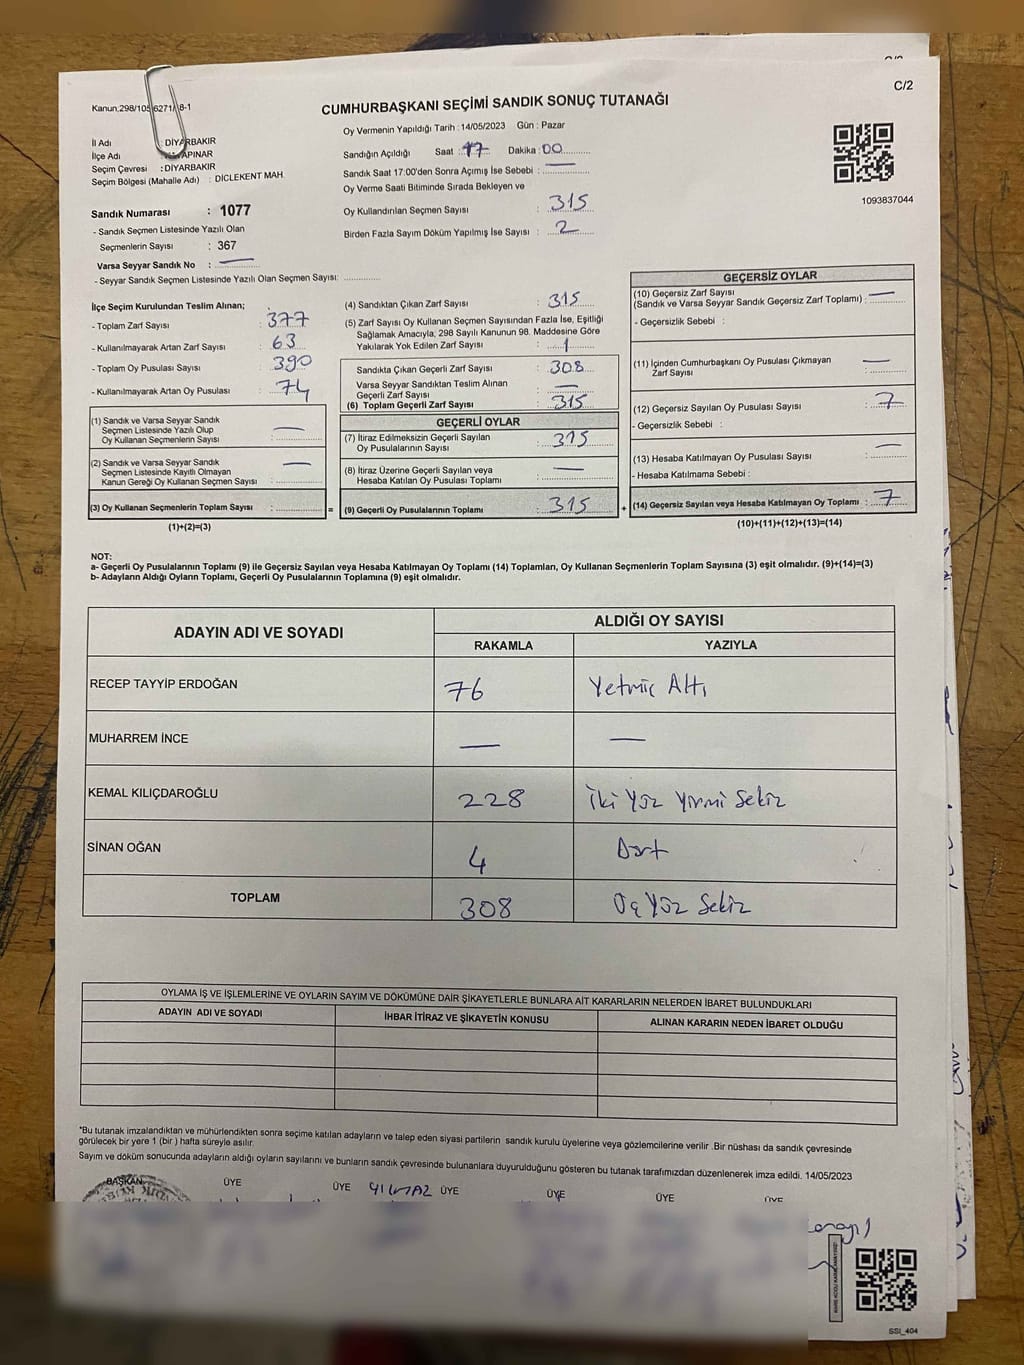 C/2
Kanun.298/105 6271/ 8-1
CUMHURBAŞKANI SEÇİMİ SANDIK SONUÇ TUTANAĞI
1093837044
İl Adı : DİYARBAKIR
İlçe Adı APINAR
Seçim Çevresi : DİYARBAKIR
Seçim Bölgesi (Mahalle Adı) : DİCLEKENT MAH.
Sandık Numarası : 1077
- Sandık Seçmen Listesinde Yazılı Olan
Seçmenlerin Sayısı : 367
Varsa Seyyar Sandık No : —
- Seyyar Sandık Seçmen Listesinde Yazılı Olan Seçmen Sayısı:
Oy Vermenin Yapıldığı Tarih : 14/05/2023 Gün : Pazar
Sandığın Açıldığı Saat : 17 Dakika : 00
Sandık Saat 17:00'den Sonra Açımış İse Sebebi : —
Oy Verme Saati Bitiminde Sırada Bekleyen ve
Oy Kullandırılan Seçmen Sayısı : 315
Birden Fazla Sayım Döküm Yapılmış İse Sayısı : 2
İlçe Seçim Kurulundan Teslim Alınan;
- Toplam Zarf Sayısı : 377
- Kullanılmayarak Artan Zarf Sayısı : 63
- Toplam Oy Pusulası Sayısı : 390
- Kullanılmayarak Artan Oy Pusulası : 74
(1) Sandık ve Varsa Seyyar Sandık
Seçmen Listesinde Yazılı Olup
Oy Kullanan Seçmenlerin Sayısı : —
(2) Sandık ve Varsa Seyyar Sandık
Seçmen Listesinde Kayıtlı Olmayan
Kanun Gereği Oy Kullanan Seçmen Sayısı : —
(3) Oy Kullanan Seçmenlerin Toplam Sayısı :
(1)+(2)=(3)
=
(4) Sandıktan Çıkan Zarf Sayısı : 315
(5) Zarf Sayısı Oy Kullanan Seçmen Sayısından Fazla İse, Eşitliği
Sağlamak Amacıyla, 298 Sayılı Kanunun 98. Maddesine Göre
Yakılarak Yok Edilen Zarf Sayısı : 1
Sandıkta Çıkan Geçerli Zarf Sayısı : 308
Varsa Seyyar Sandıktan Teslim Alınan
Geçerli Zarf Sayısı : —
(6) Toplam Geçerli Zarf Sayısı : 315
GEÇERLİ OYLAR
(7) İtiraz Edilmeksizin Geçerli Sayılan
Oy Pusulalarının Sayısı : 315
(8) İtiraz Üzerine Geçerli Sayılan veya
Hesaba Katılan Oy Pusulası Toplamı : —
(9) Geçerli Oy Pusulalarının Toplamı : 315
+
GEÇERSİZ OYLAR
(10) Geçersiz Zarf Sayısı
(Sandık ve Varsa Seyyar Sandık Geçersiz Zarf Toplamı) : —
- Geçersizlik Sebebi :
(11) İçinden Cumhurbaşkanı Oy Pusulası Çıkmayan
Zarf Sayısı : —
(12) Geçersiz Sayılan Oy Pusulası Sayısı : 7
- Geçersizlik Sebebi :
(13) Hesaba Katılmayan Oy Pusulası Sayısı : —
- Hesaba Katılmama Sebebi :
(14) Geçersiz Sayılan veya Hesaba Katılmayan Oy Toplamı : 7
(10)+(11)+(12)+(13)=(14)
NOT:
a- Geçerli Oy Pusulalarının Toplamı (9) ile Geçersiz Sayılan veya Hesaba Katılmayan Oy Toplamı (14) Toplamları, Oy Kullanan Seçmenlerin Toplam Sayısına (3) eşit olmalıdır. (9)+(14)=(3)
b- Adayların Aldığı Oyların Toplamı, Geçerli Oy Pusulalarının Toplamına (9) eşit olmalıdır.
ADAYIN ADI VE SOYADI ALDIĞI OY SAYISI
RAKAMLA YAZIYLA
RECEP TAYYİP ERDOĞAN 76 Yetmiş Altı
MUHARREM İNCE — —
KEMAL KILIÇDAROĞLU 228 İki Yüz Yirmi Sekiz
SİNAN OĞAN 4 Dört
TOPLAM 308 Üç Yüz Sekiz
OYLAMA İŞ VE İŞLEMLERİNE VE OYLARIN SAYIM VE DÖKÜMÜNE DAİR ŞİKAYETLERLE BUNLARA AİT KARARLARIN NELERDEN İBARET BULUNDUKLARI
ADAYIN ADI VE SOYADI İHBAR İTİRAZ VE ŞİKAYETİN KONUSU ALINAN KARARIN NEDEN İBARET OLDUĞU
*Bu tutanak imzalandıktan ve mühürlendikten sonra seçime katılan adayların ve talep eden siyasi partilerin sandık kurulu üyelerine veya gözlemcilerine verilir .Bir nüshası da sandık çevresinde
görülecek bir yere 1 (bir ) hafta süreyle asılır.
Sayım ve döküm sonucunda adayların aldığı oyların sayılarını ve bunların sandık çevresinde bulunanlara duyurulduğunu gösteren bu tutanak tarafımızdan düzenlenerek imza edildi. 14/05/2023
BAŞKAN ÜYE ÜYE YILMAZ ÜYE ÜYE ÜYE ÜYE
SSI_404